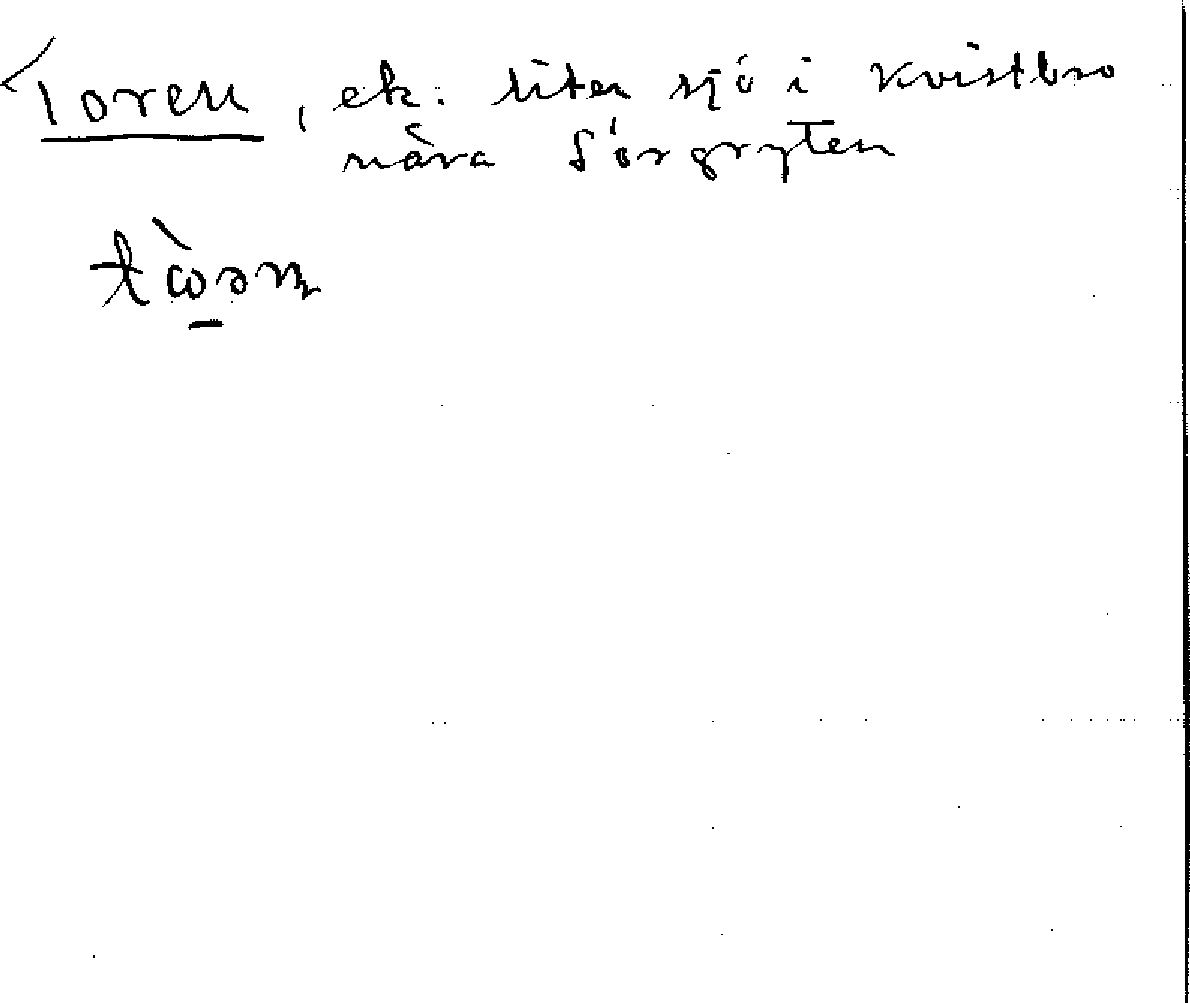 Toren, ek. liten sjö i Kvistbro
nära Sörgryten